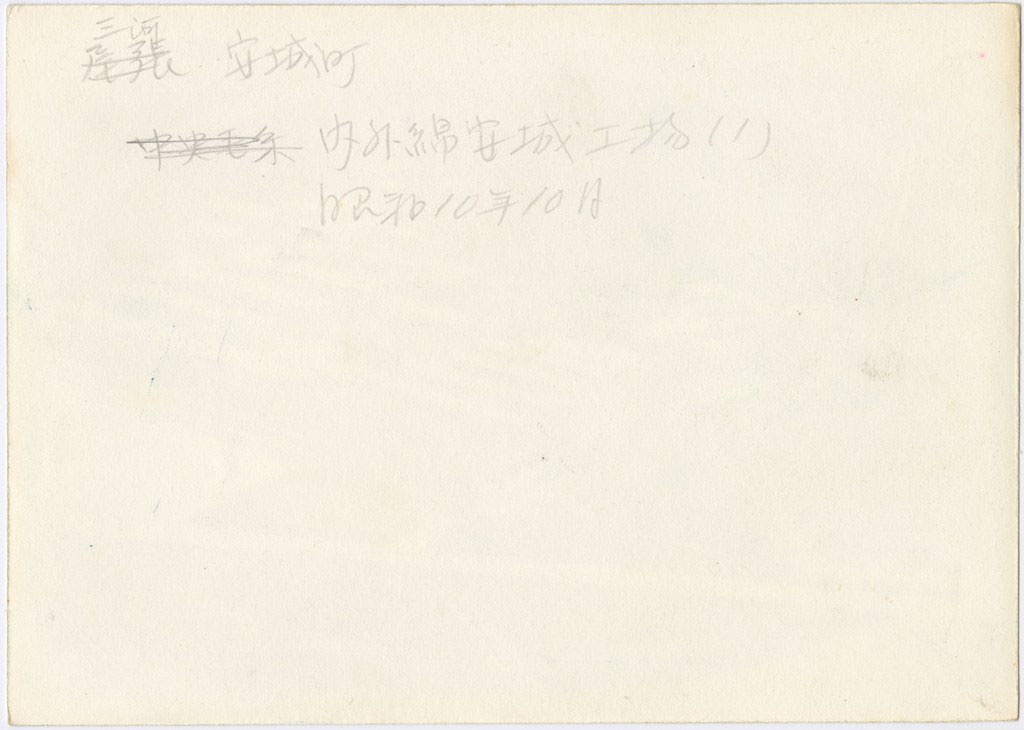 三河
尾張 安城町
中央毛糸 内外綿安城工場(1)
昭和10年10月